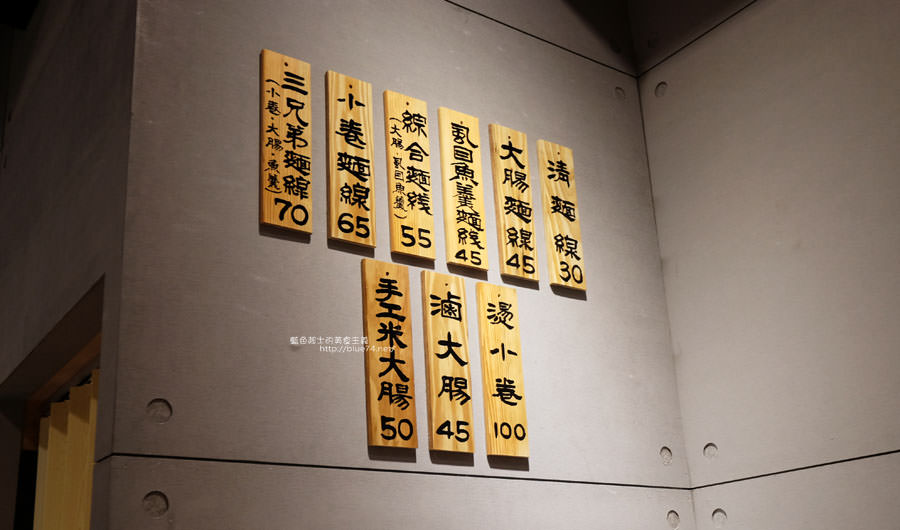 三兄弟麵線
(小卷·大腸·魚羹)
70
小卷麵線
65
綜合麵线
(大腸·虱目魚羹)
55
虱目魚羹麵线
45
大腸麵線
45
清麵線
30
手工米大腸
50
滷大腸
45
燙小卷
100
藍色起士的美食主義
http://blue74.net